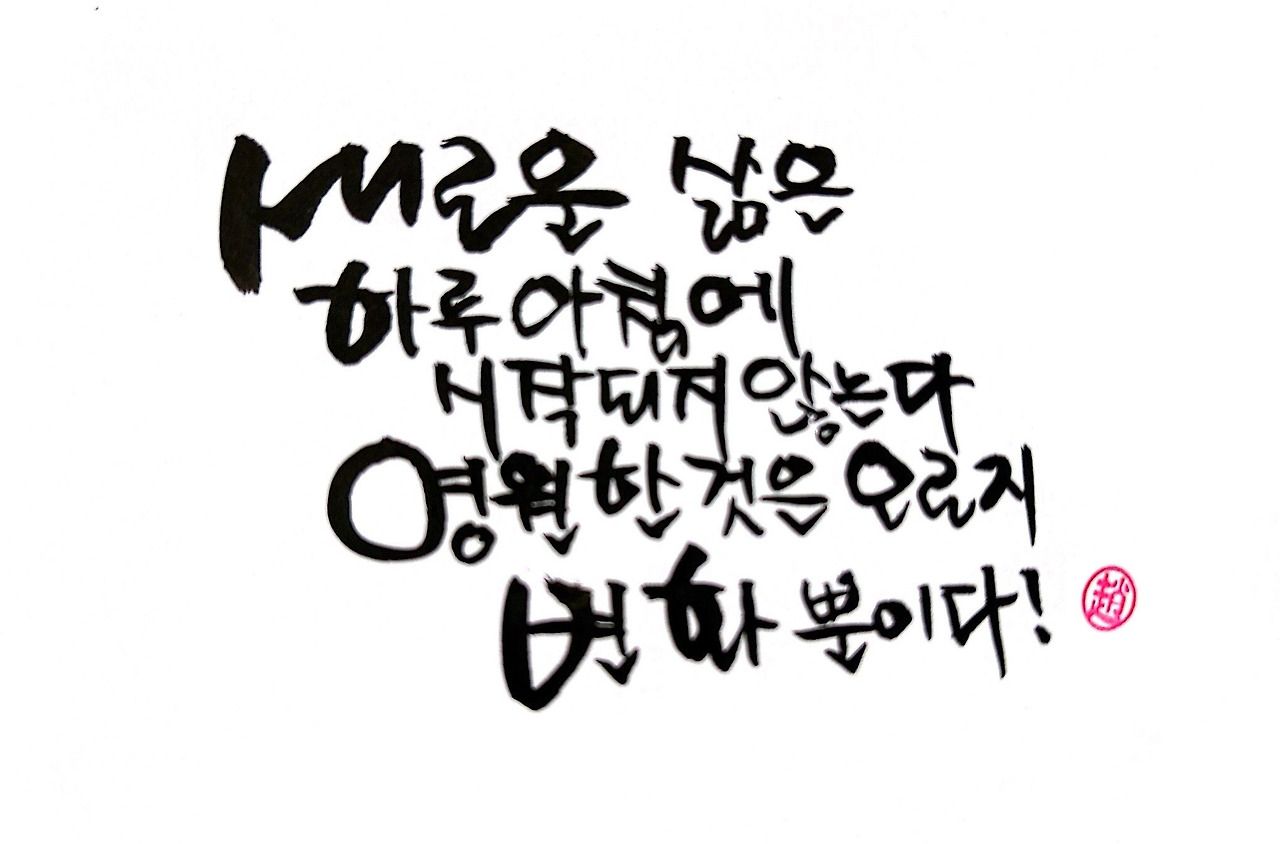 새로운 삶은
하루아침에
시작되지 않는다
영원한 것은 오로지
변화 뿐이다!
趙